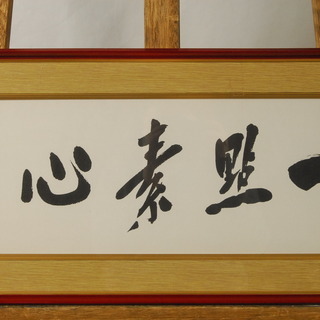 一點素心